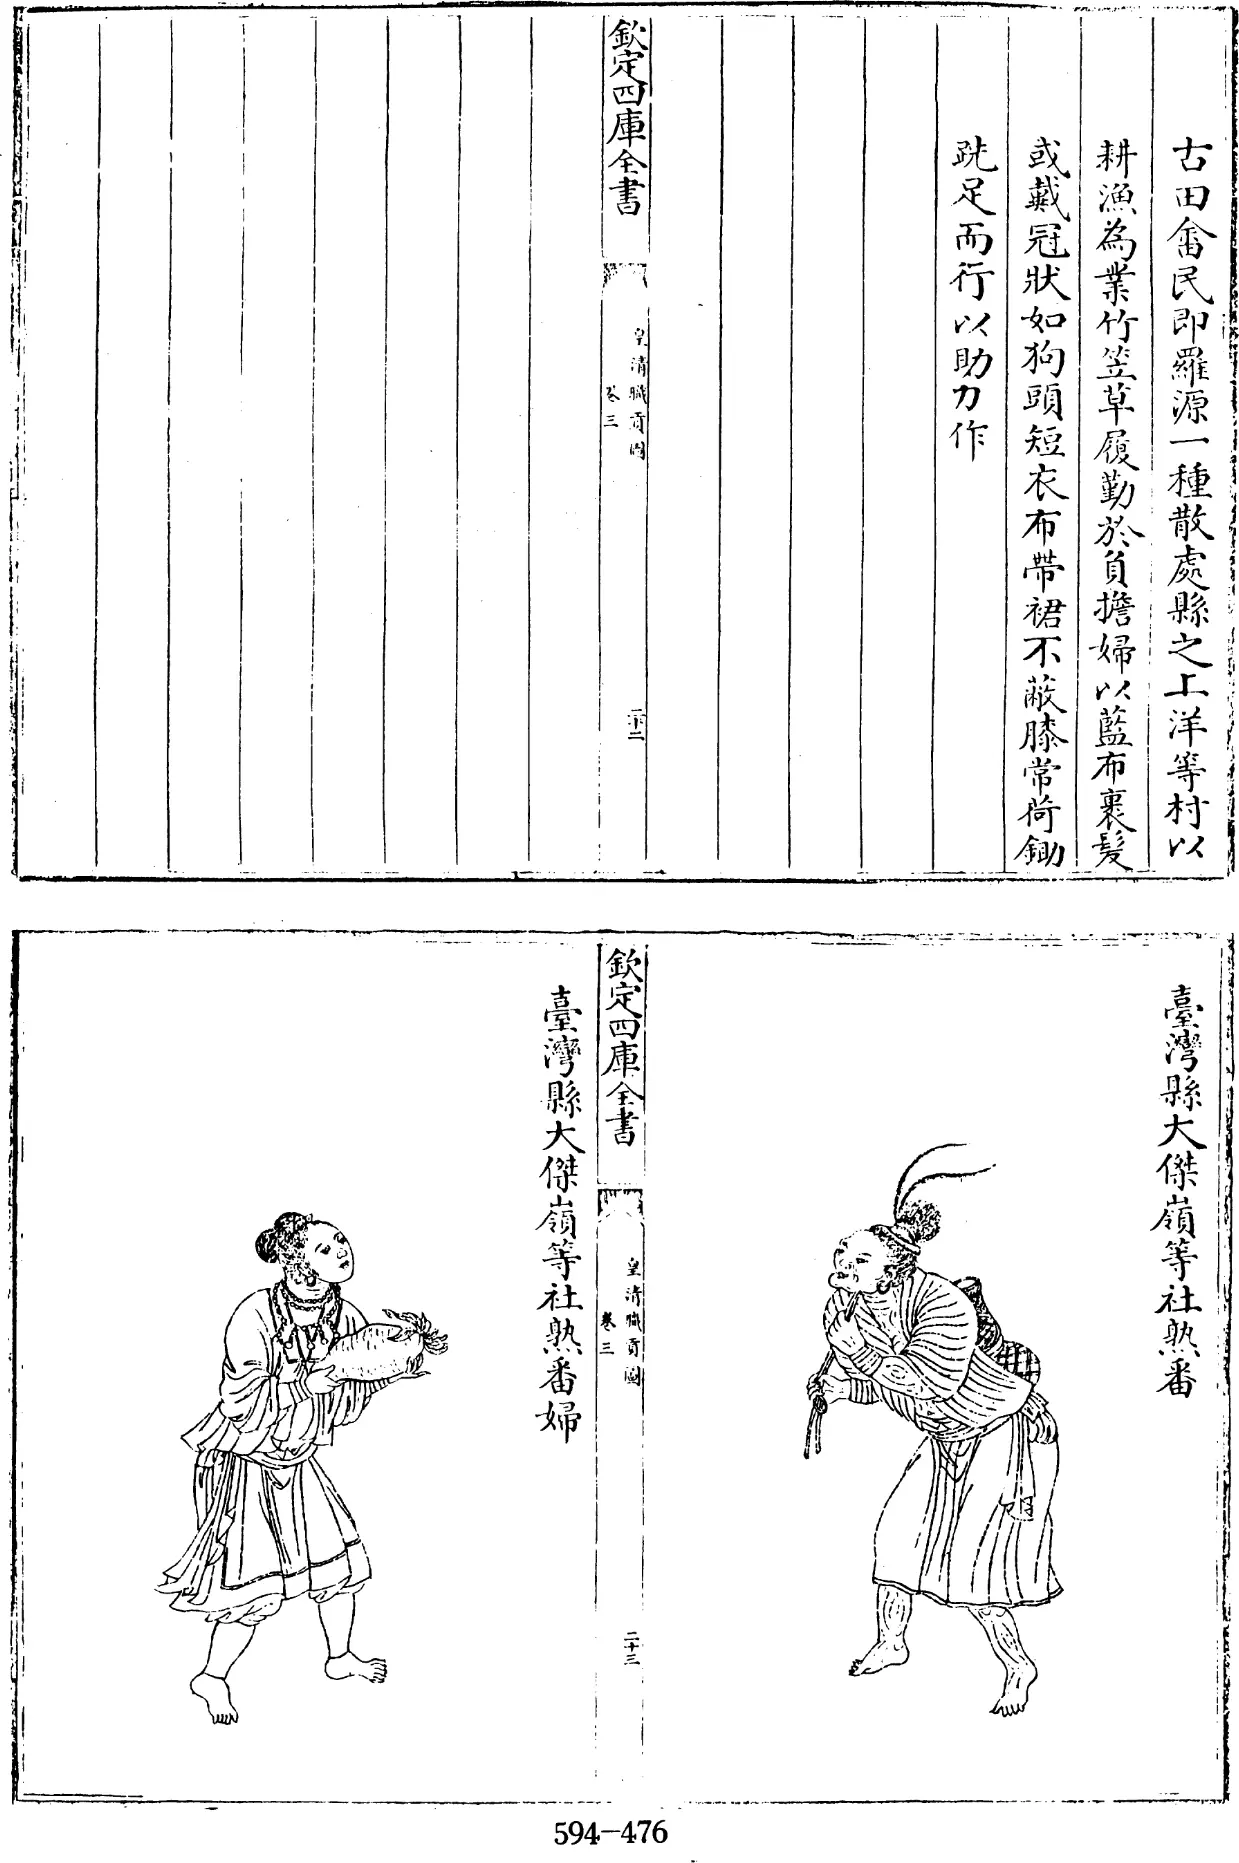 古田畬民即羅源一種散處縣之上洋等村以
耕漁為業竹笠草履勤於負擔婦以藍布裹髮
或戴冠狀如狗頭短衣布帶裙不蔽膝常荷鋤
跣足而行以助力作
欽定四庫全書
皇清職貢圖
卷三
二十二
臺灣縣大傑嶺等社熟番
欽定四庫全書
皇清職貢圖
卷三
二十三
臺灣縣大傑嶺等社熟番婦
594-476